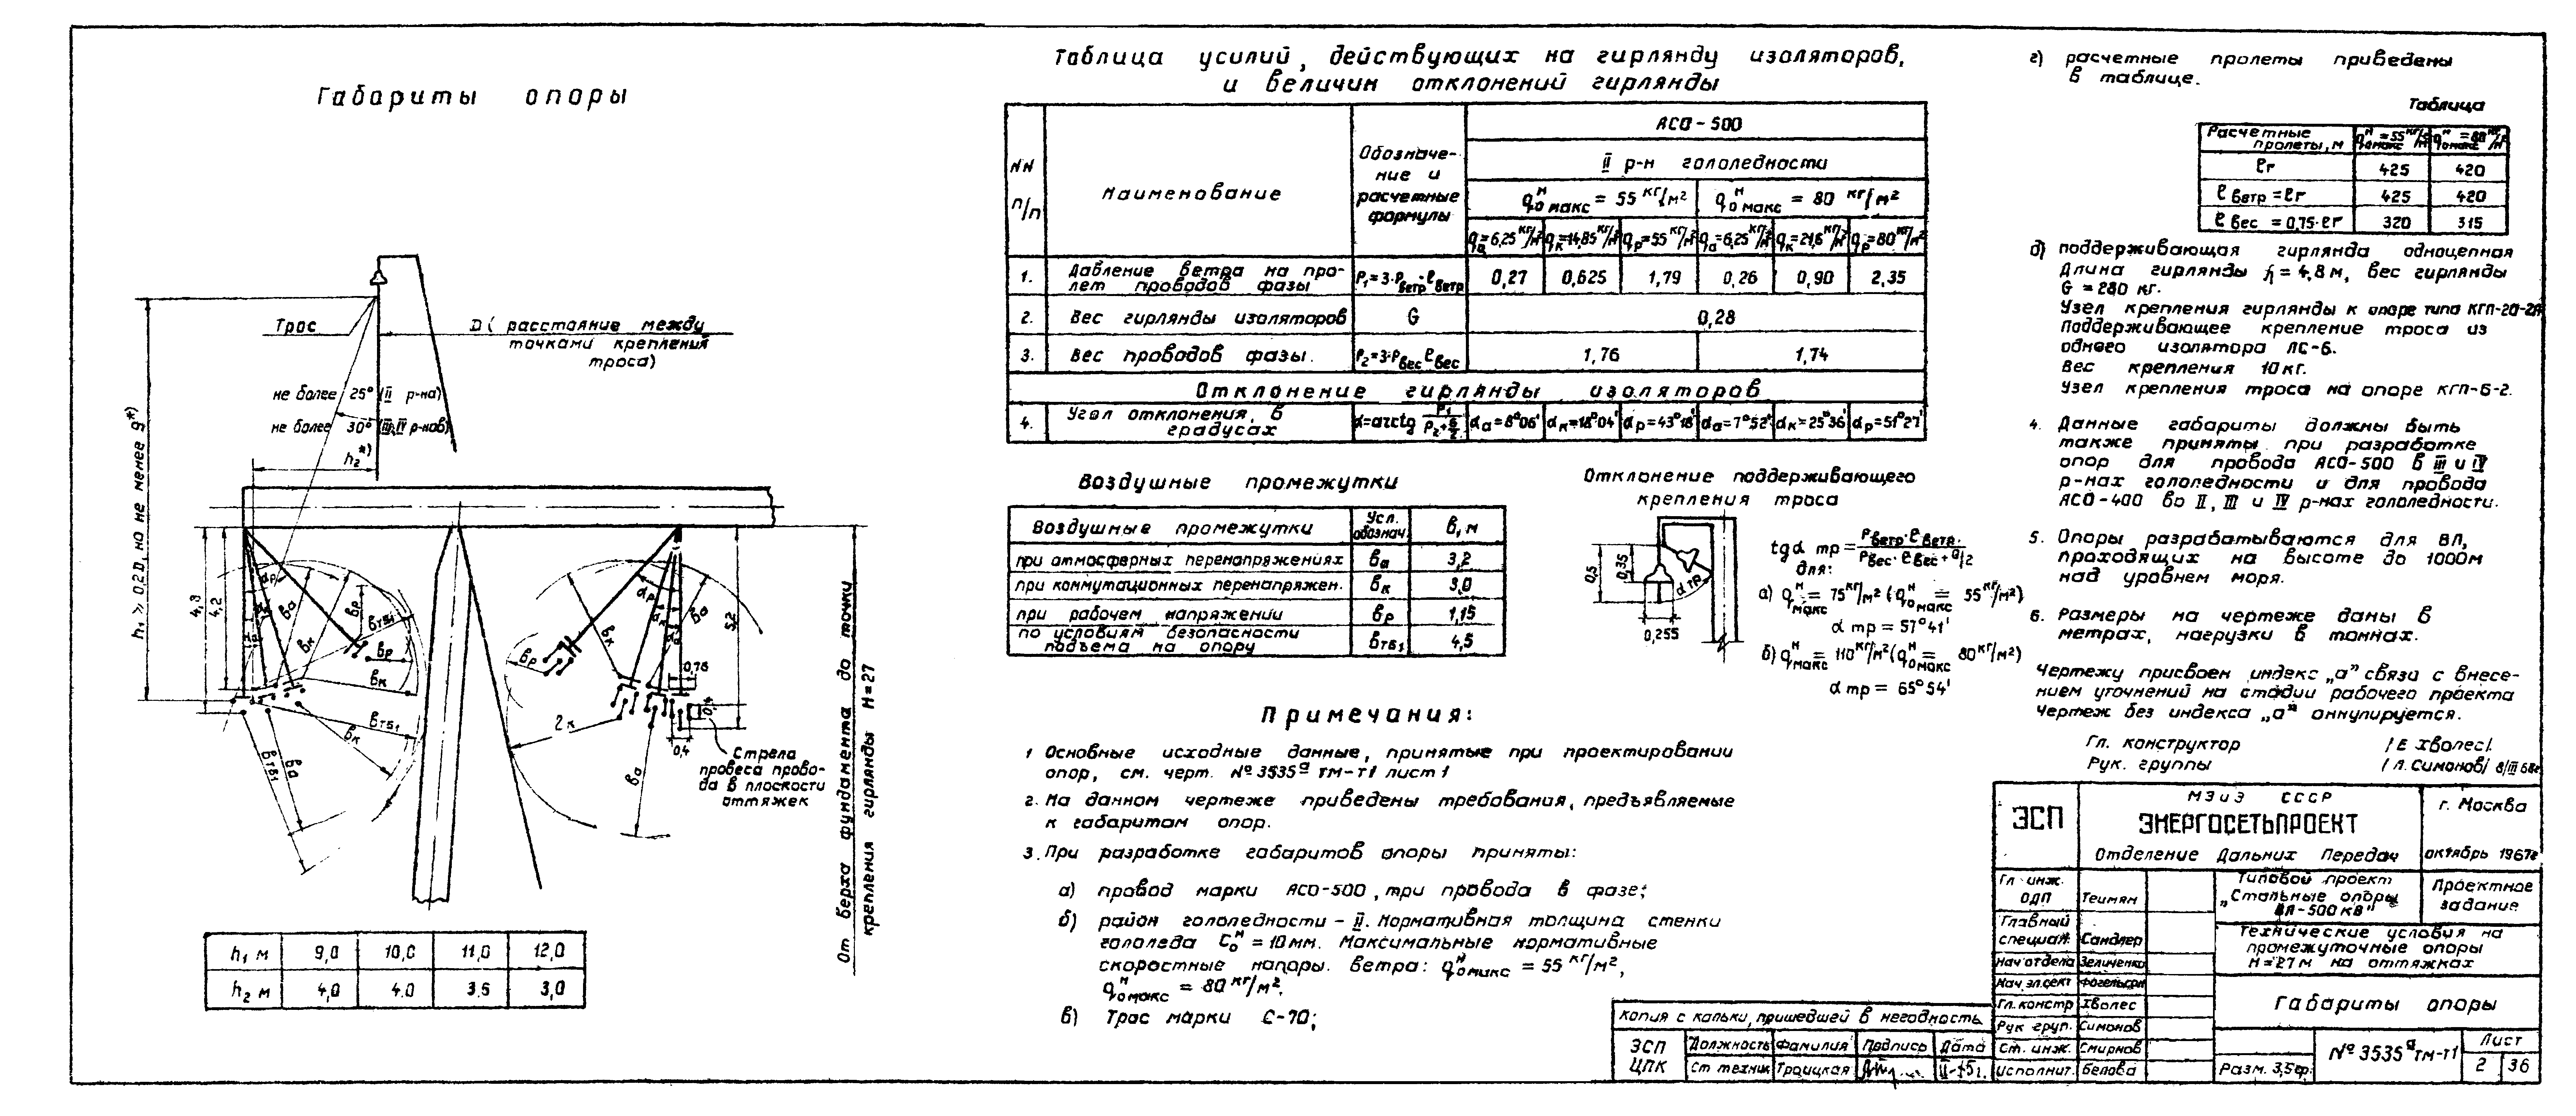 Габариты опоры
Трос
D (расстояние между
точками крепления
троса)
не более 25° (II р-на)
не более 30° (III,IV р-нов)
h₂*)
h₁ ≥ 0,2D, но не менее 9*)
4,3
4,2
5,2
αр
αк
αа
Ва
Вк
Вр
Втб₁
Вр
Вк
Втб₁
Вк
Втб₁
Ва
Вр
Вк
αр
αк
Ва
2к
Ва
0,76
0,4
0,4
Стрела
провеса прово-
да в плоскости
оттяжек
От верха фундамента до точки
крепления гирлянды Н=27
h₁ м 9,0 10,0 11,0 12,0
h₂ м 4,0 4.0 3.5 3,0
Таблица усилий, действующих на гирлянду изоляторов,
и величин отклонений гирлянды
NN п/п
Наименование
Обозначе-
ние и
расчетные
формулы
АСО-500
II р-н гололедности
qᴴ₀ макс = 55 кг/м² qᴴ₀ макс = 80 кг/м²
qа=6,25 кг/м² qк=14,85 кг/м² qр=55 кг/м² qа=6,25 кг/м² qк=21,6 кг/м² qр=80 кг/м²
1. Давление ветра на про-
лет проводов фазы P₁=3·Pветр·ℓветр 0,27 0,625 1,79 0,26 0,90 2,35
2. Вес гирлянды изоляторов G 0,28
3. Вес проводов фазы. P₂=3·Pвес·ℓвес 1,76 1,74
Отклонение гирлянды изоляторов
4. Угол отклонения, в
градусах α=arctg P₁/(P₂+G/2) αа=8°06' αк=18°04' αр=43°18' αа=7°52' αк=25°36' αр=51°27'
Воздушные промежутки
Воздушные промежутки Усл. обознач. В, м
при атмосферных перенапряжениях Ва 3,2
при коммутационных перенапряжен. Вк 3,0
при рабочем напряжении Вр 1,15
по условиям безопасности
подъема на опору Втб₁ 4,5
Отклонение поддерживающего
крепления троса
0,5
0,35
0,255
α тр
tgα тр = (Pветр·ℓветр.)/(Pвес·ℓвес + G/2)
для:
а) qᴴмакс = 75 кг/м² (qᴴ₀макс = 55 кг/м²)
α тр = 57°41'
б) qᴴмакс = 110 кг/м² (qᴴ₀макс = 80 кг/м²)
α тр = 65°54'
Примечания:
1 Основные исходные данные, принятые при проектировании
опор, см. черт. № 3535ᵃ тм-т1 лист 1
2. На данном чертеже приведены требования, предъявляемые
к габаритам опор.
3. При разработке габаритов опоры приняты:
а) провод марки АСО-500, три провода в фазе;
б) район гололедности – II. Нормативная толщина стенки
гололеда Cᴴ₀ = 10 мм. Максимальные нормативные
скоростные напоры. ветра: qᴴ₀макс = 55 кг/м²,
qᴴ₀макс = 80 кг/м².
в) Трос марки С-70;
г) расчетные пролеты приведены
в таблице.
Таблица
Расчетные
пролеты, м qᴴ₀макс=55 кг/м² qᴴ₀макс=80 кг/м²
ℓг 425 420
ℓветр = ℓг 425 420
ℓвес = 0,75·ℓг 320 315
д) поддерживающая гирлянда одноцепная
Длина гирлянды λ = 4,8 м, вес гирлянды
G = 280 кг.
Узел крепления гирлянды к опоре типа КГП-20-2А
Поддерживающее крепление троса из
одного изолятора ЛС-6.
Вес крепления 10 кг.
Узел крепления троса на опоре КГП-6-2.
4. Данные габариты должны быть
также приняты при разработке
опор для провода АСО-500 в III и IV
р-нах гололедности и для провода
АСО-400 во II, III и IV р-нах гололедности.
5. Опоры разрабатываются для ВЛ,
проходящих на высоте до 1000м
над уровнем моря.
6. Размеры на чертеже даны в
метрах, нагрузки в тоннах.
Чертежу присвоен индекс „а" связи с внесе-
нием уточнений на стадии рабочего проекта
Чертеж без индекса „а" аннулируется.
Гл. конструктор /Е Хволес/.
Рук. группы /Л. Симонов/ 8/III 68г
ЭСП
МЭиЭ СССР
ЭНЕРГОСЕТЬПРОЕКТ
Отделение Дальних Передач
г. Москва
октябрь 1967г
Гл. инж.
ОДП Теимян
Главный
специал. Сандлер
Нач отдела Зеличенко
Нач. эл.сект Фогельсон
Гл. констр Хволес
Рук груп. Симонов
Ст. инж. Смирнов
Исполнит. Белова
Типовой проект
„Стальные опоры
ВЛ-500 кВ"
Проектное
задание
Технические условия на
промежуточные опоры
Н=27м на оттяжках
Габариты опоры
Разм. 3,5ф.
№ 3535ᵃтм-т1
Лист
2 36
Копия с кальки, пришедшей в негодность
ЭСП
ЦПК
Должность Фамилия Подпись Дата
Ст техник Троицкая